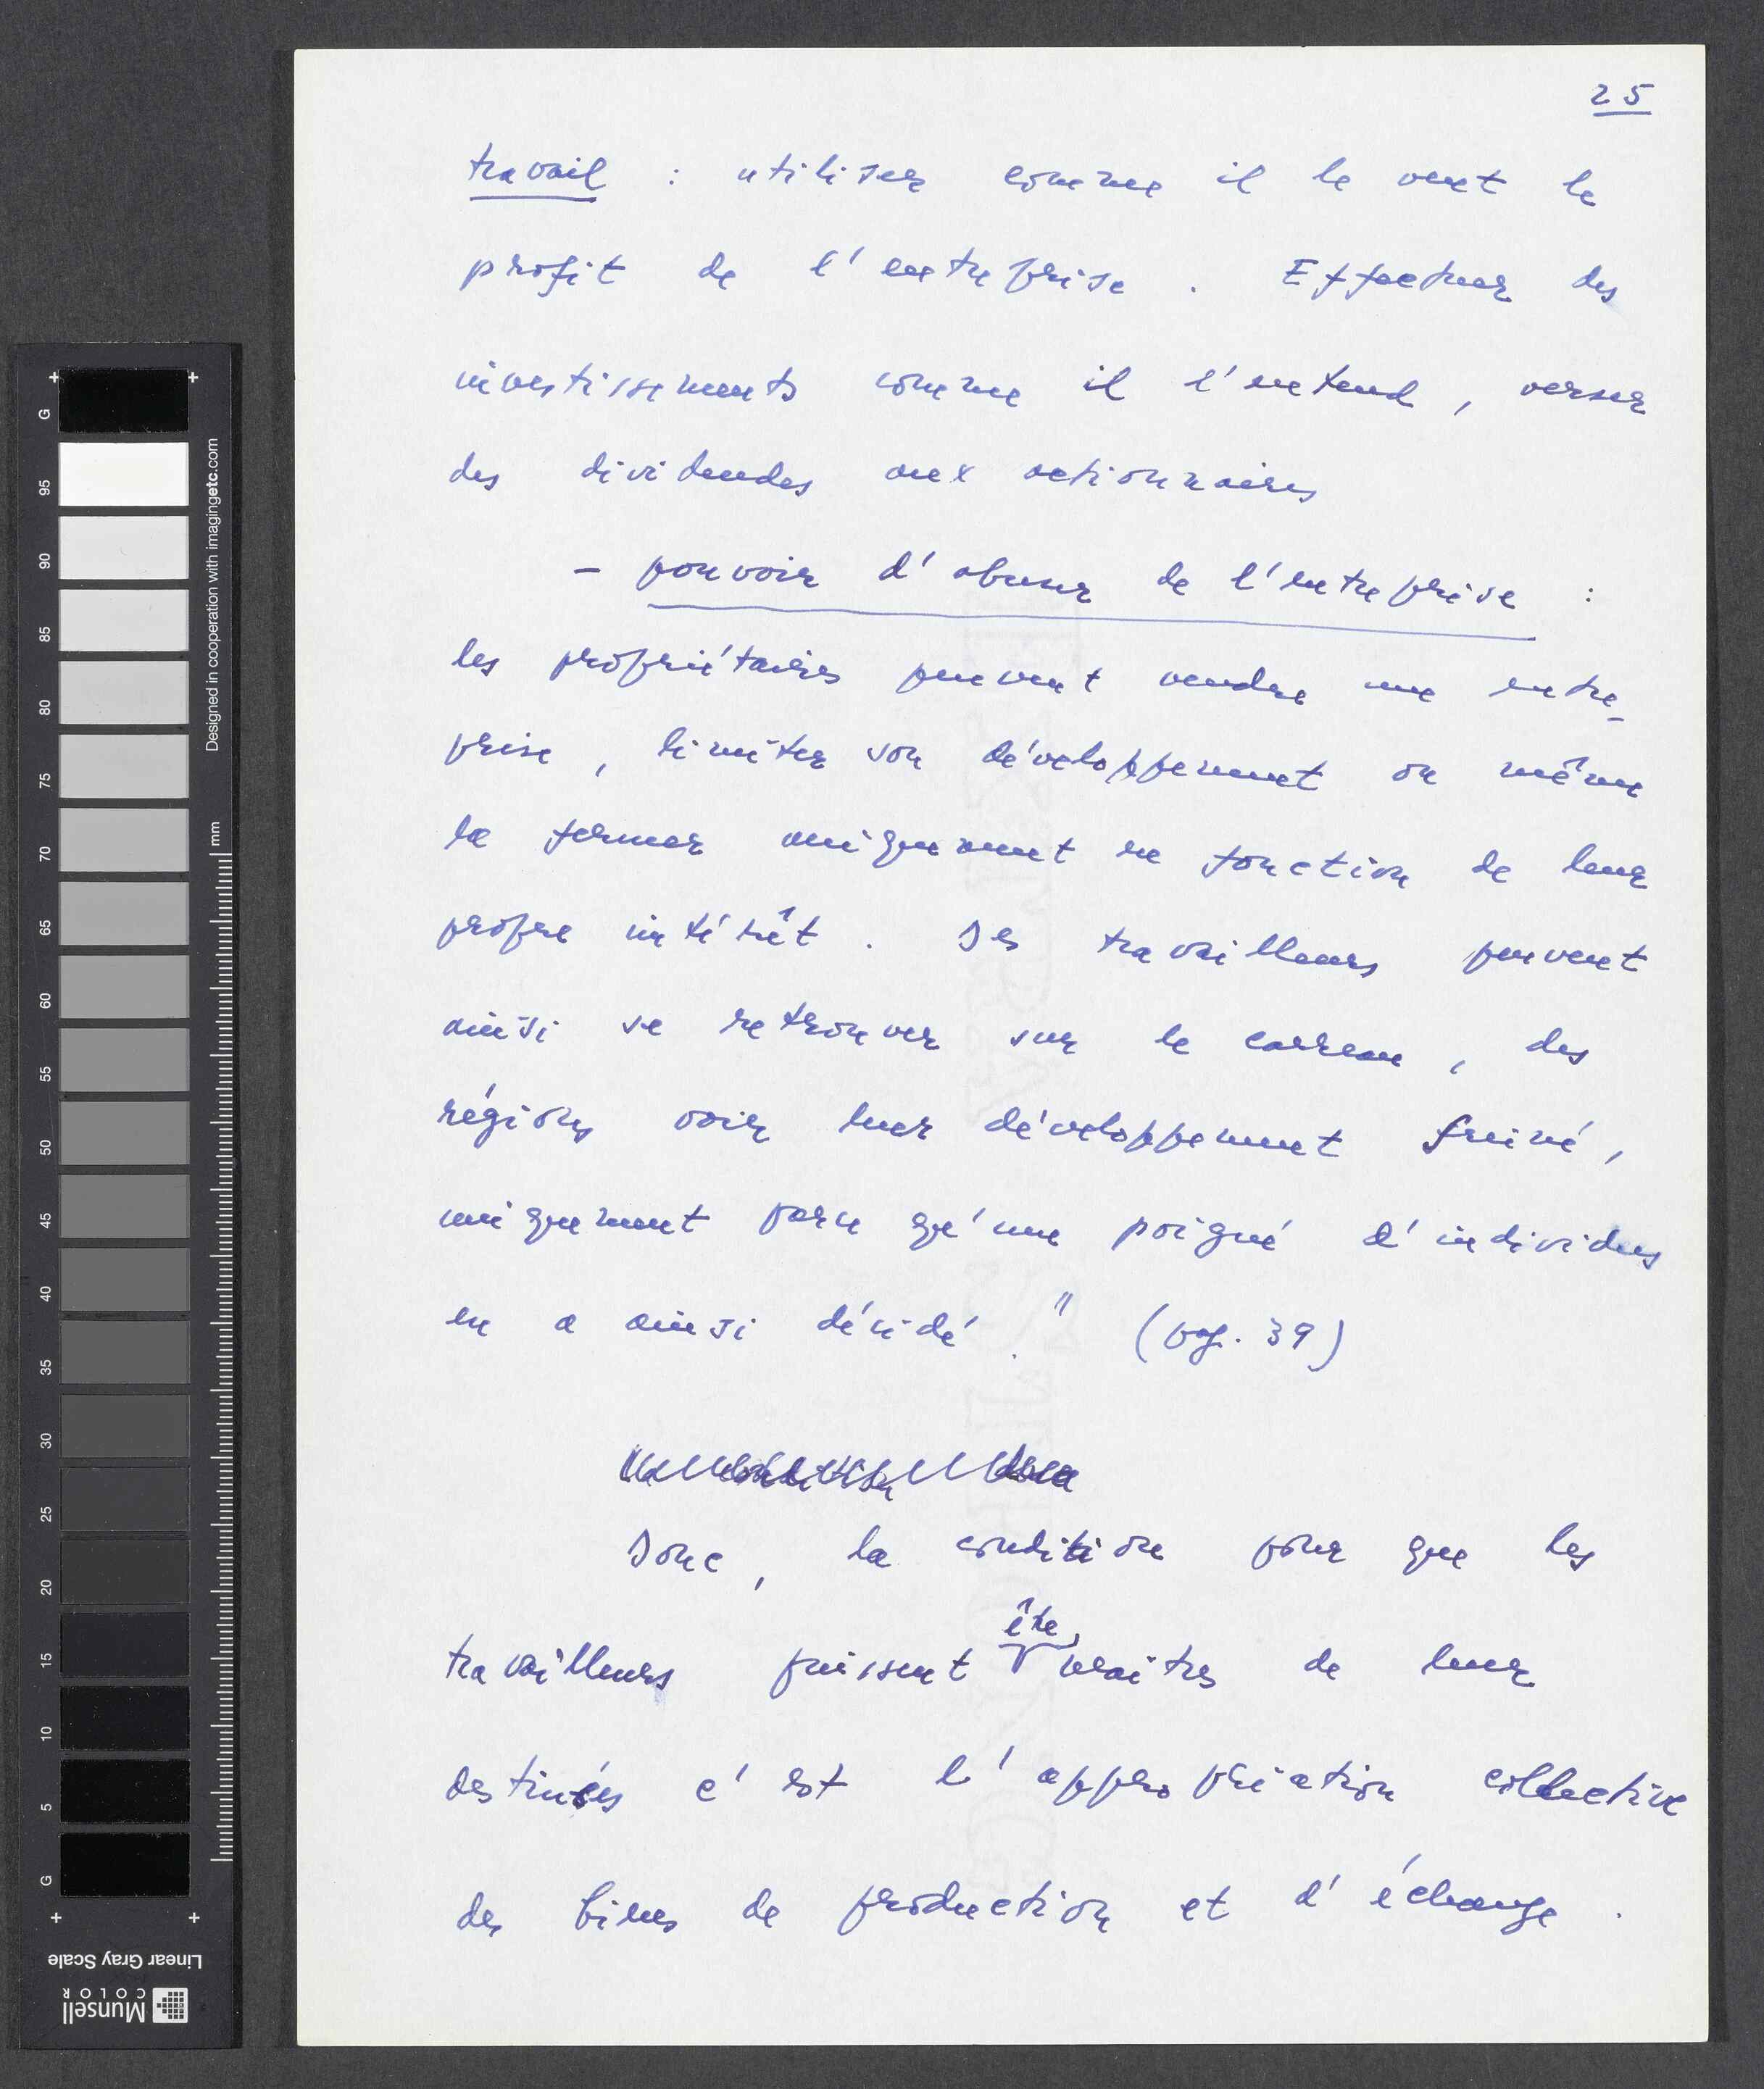 25
travail : utiliser comme il le veut le
profit de l'entreprise . Effectuer des
investissements comme il l'entend , verser
des dividendes aux actionnaires
- pouvoir d'abuser de l'entreprise :
les propriétaires peuvent vendre une entre-
prise , limiter son développement ou même
la fermer uniquement en fonction de leur
propre intérêt . Des travailleurs peuvent
ainsi se retrouver sur le carreau , des
régions voir leur développement freiné ,
uniquement parce qu'une poigné d'individus
en a ainsi décidé . " (pag. 39)
Donc , la condition pour que les
être
travailleurs puissent maitres de leur
destinés c'est l'appropriation collective
des biens de production et d'échange .
G
95
90
85
80
75
70
65
60
55
50
45
40
35
30
25
20
15
10
5
G
mm
Designed in cooperation with imagingetc.com
Linear Gray Scale
Munsell
COLOR